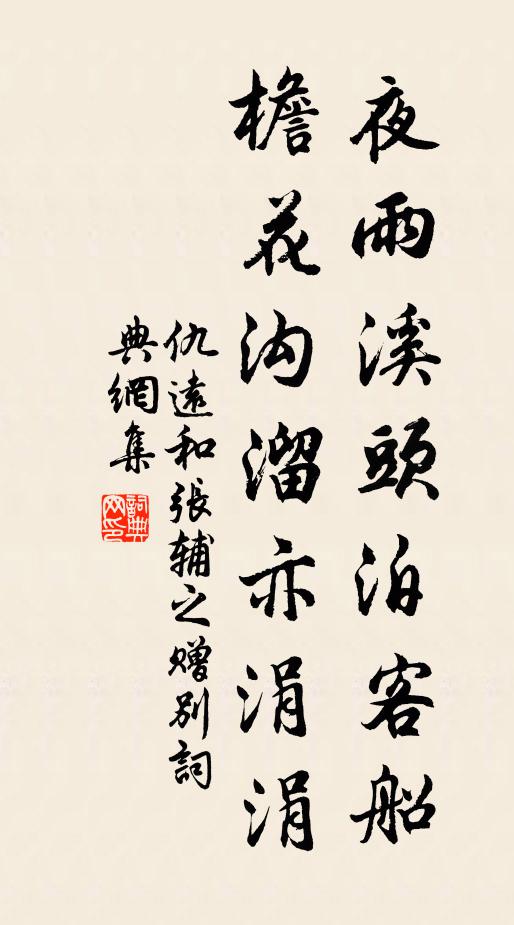 夜雨溪頭泊客船
檐花沟溜亦涓涓
仇遠和張辅之赠别詞
典網集
詞典
网印